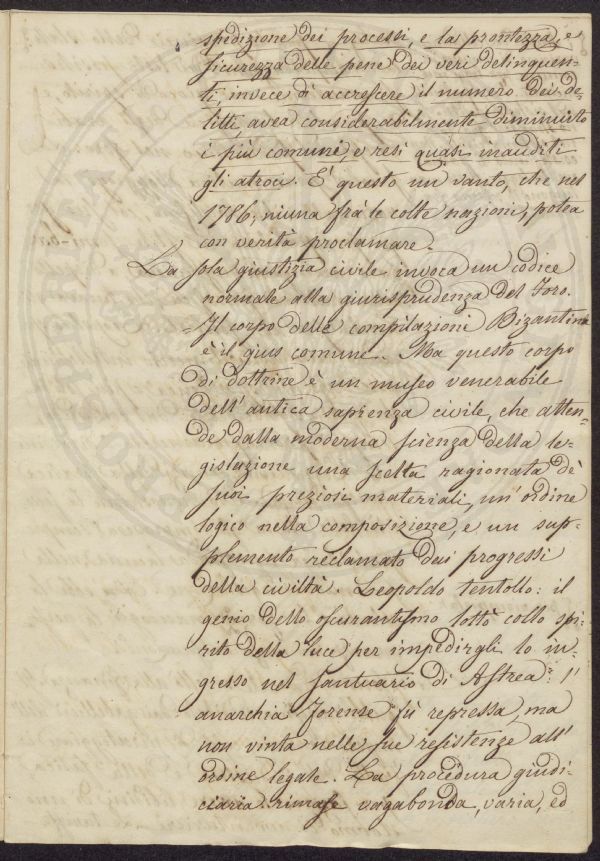 spedizione dei processi, e la prontezza, e
sicurezza delle pene dei veri delinquen-
ti, invece di accrescere il numero dei de-
litti, avea considerabilmente diminuito
i più comuni, e resi quasi inauditi
gli atroci. E' questo un vanto, che nel
1786, niuna frà le colte nazioni, potea
con verità proclamare.
La sola giustizia civile invoca un codice
normale alla giurisprudenza del Foro.
Il corpo delle compilazioni Bizantine
è il gius comune. Ma questo corpo
di dottrine è un museo venerabile
dell'antica sapienza civile, che atten-
de dalla moderna scienza della le-
gislazione una scelta ragionata dè
suoi preziosi materiali, un'ordine
logico nella composizione, e un sup-
plemento reclamato dai progressi
della civiltà. Leopoldo tentollo: il
genio dello oscurantismo lottò collo spi-
rito della luce per impedirgli lo in-
gresso nel santuario di Astrea: l'
anarchia forense fù repressa, ma
non vinta nelle sue resistenze all'
ordine legale. La procedura giudi-
ciaria rimase vagabonda, varia, ed